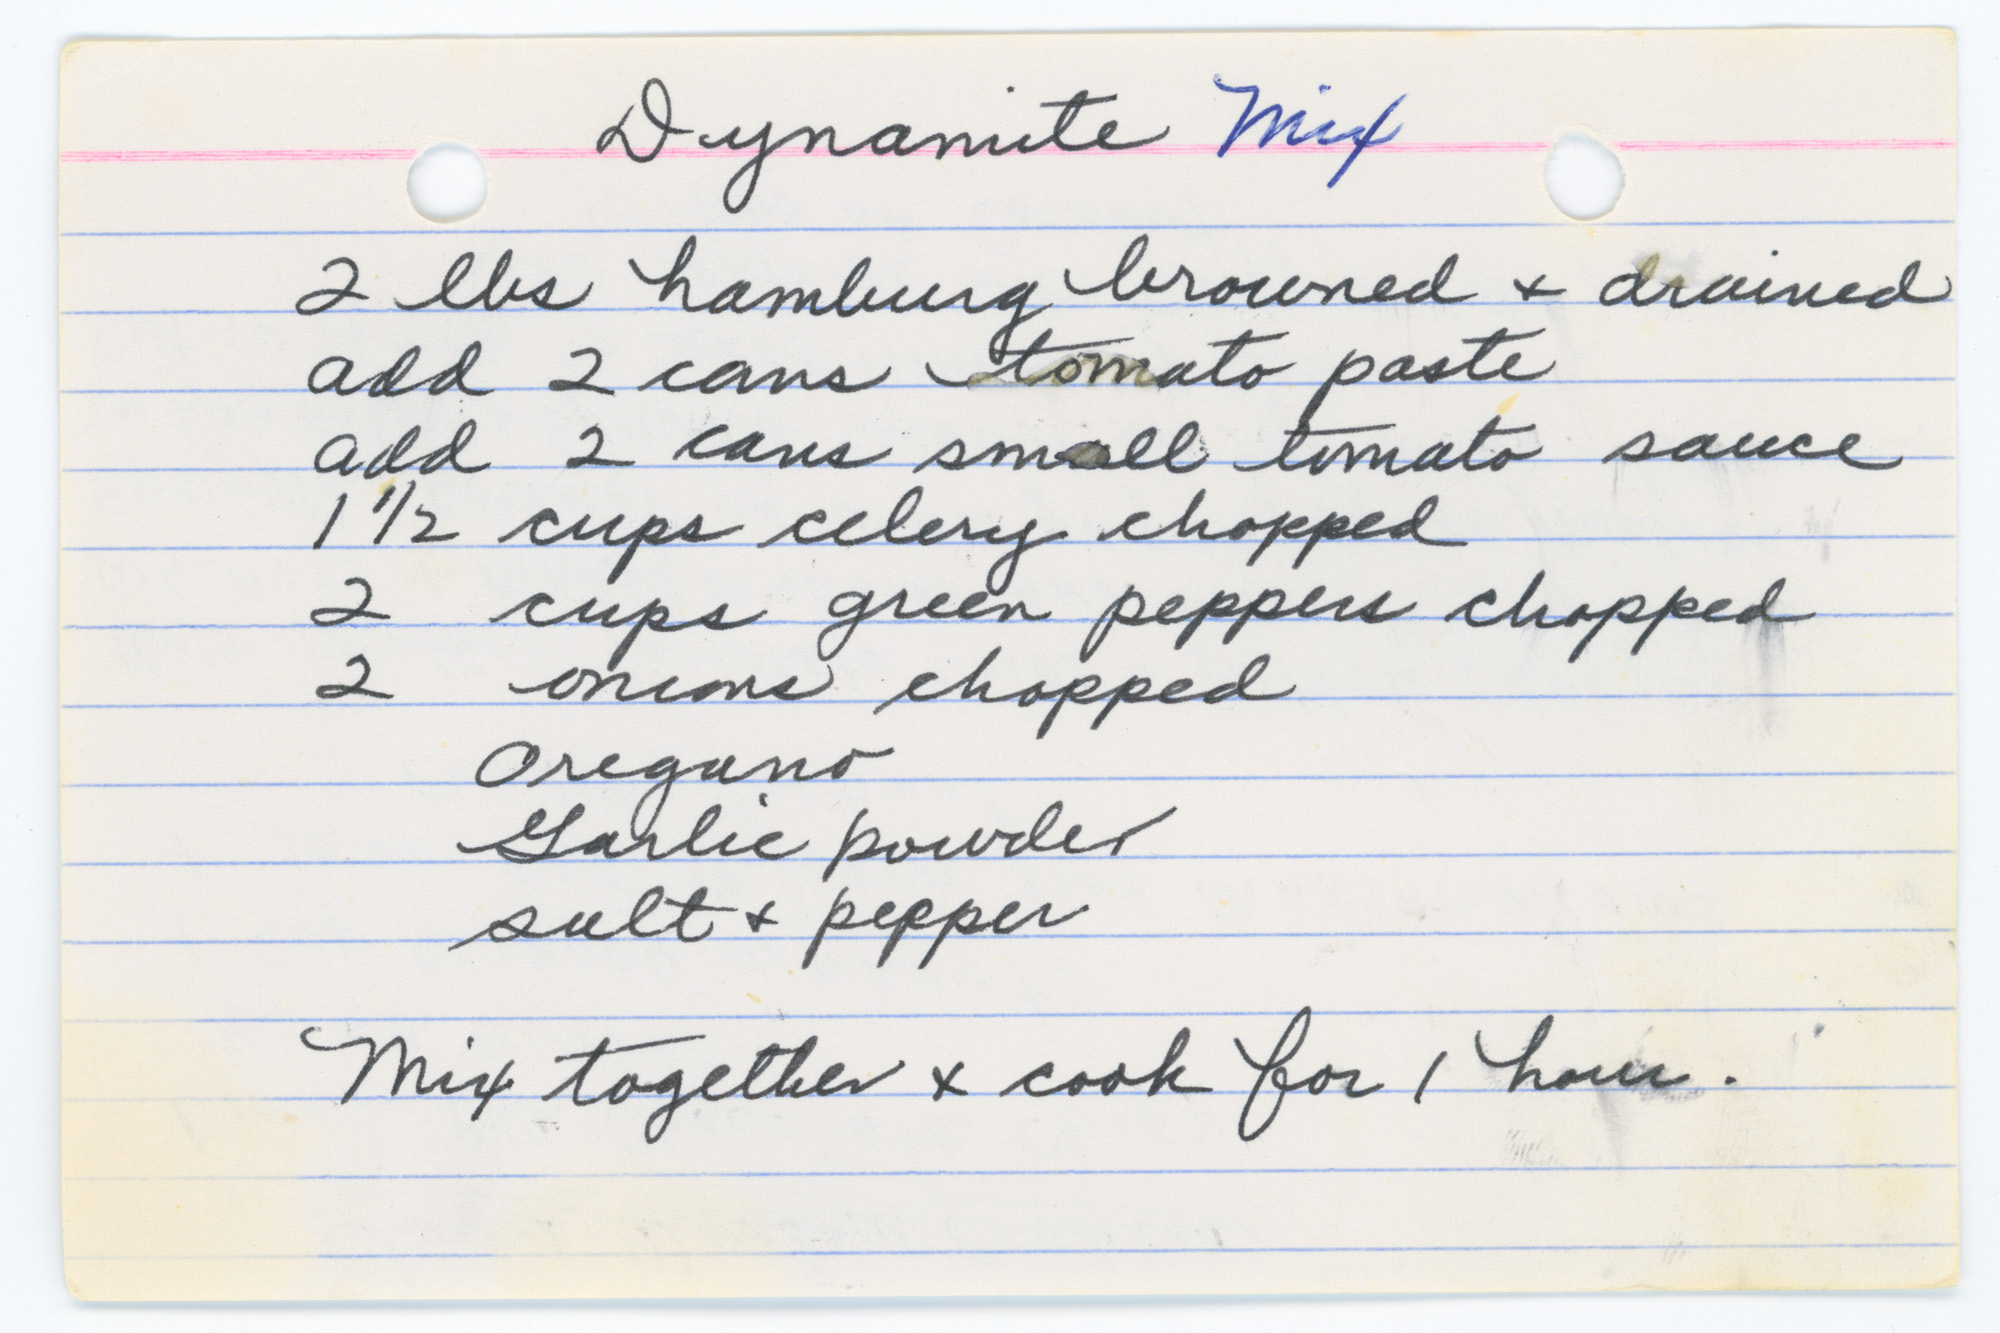 Dynamite Mix
2 lbs hamburg browned + drained
add 2 cans tomato paste
add 2 cans small tomato sauce
1 1/2 cups celery chopped
2 cups green peppers chopped
2 onions chopped
Oregano
Garlic powder
salt + pepper
Mix together + cook for 1 hour.